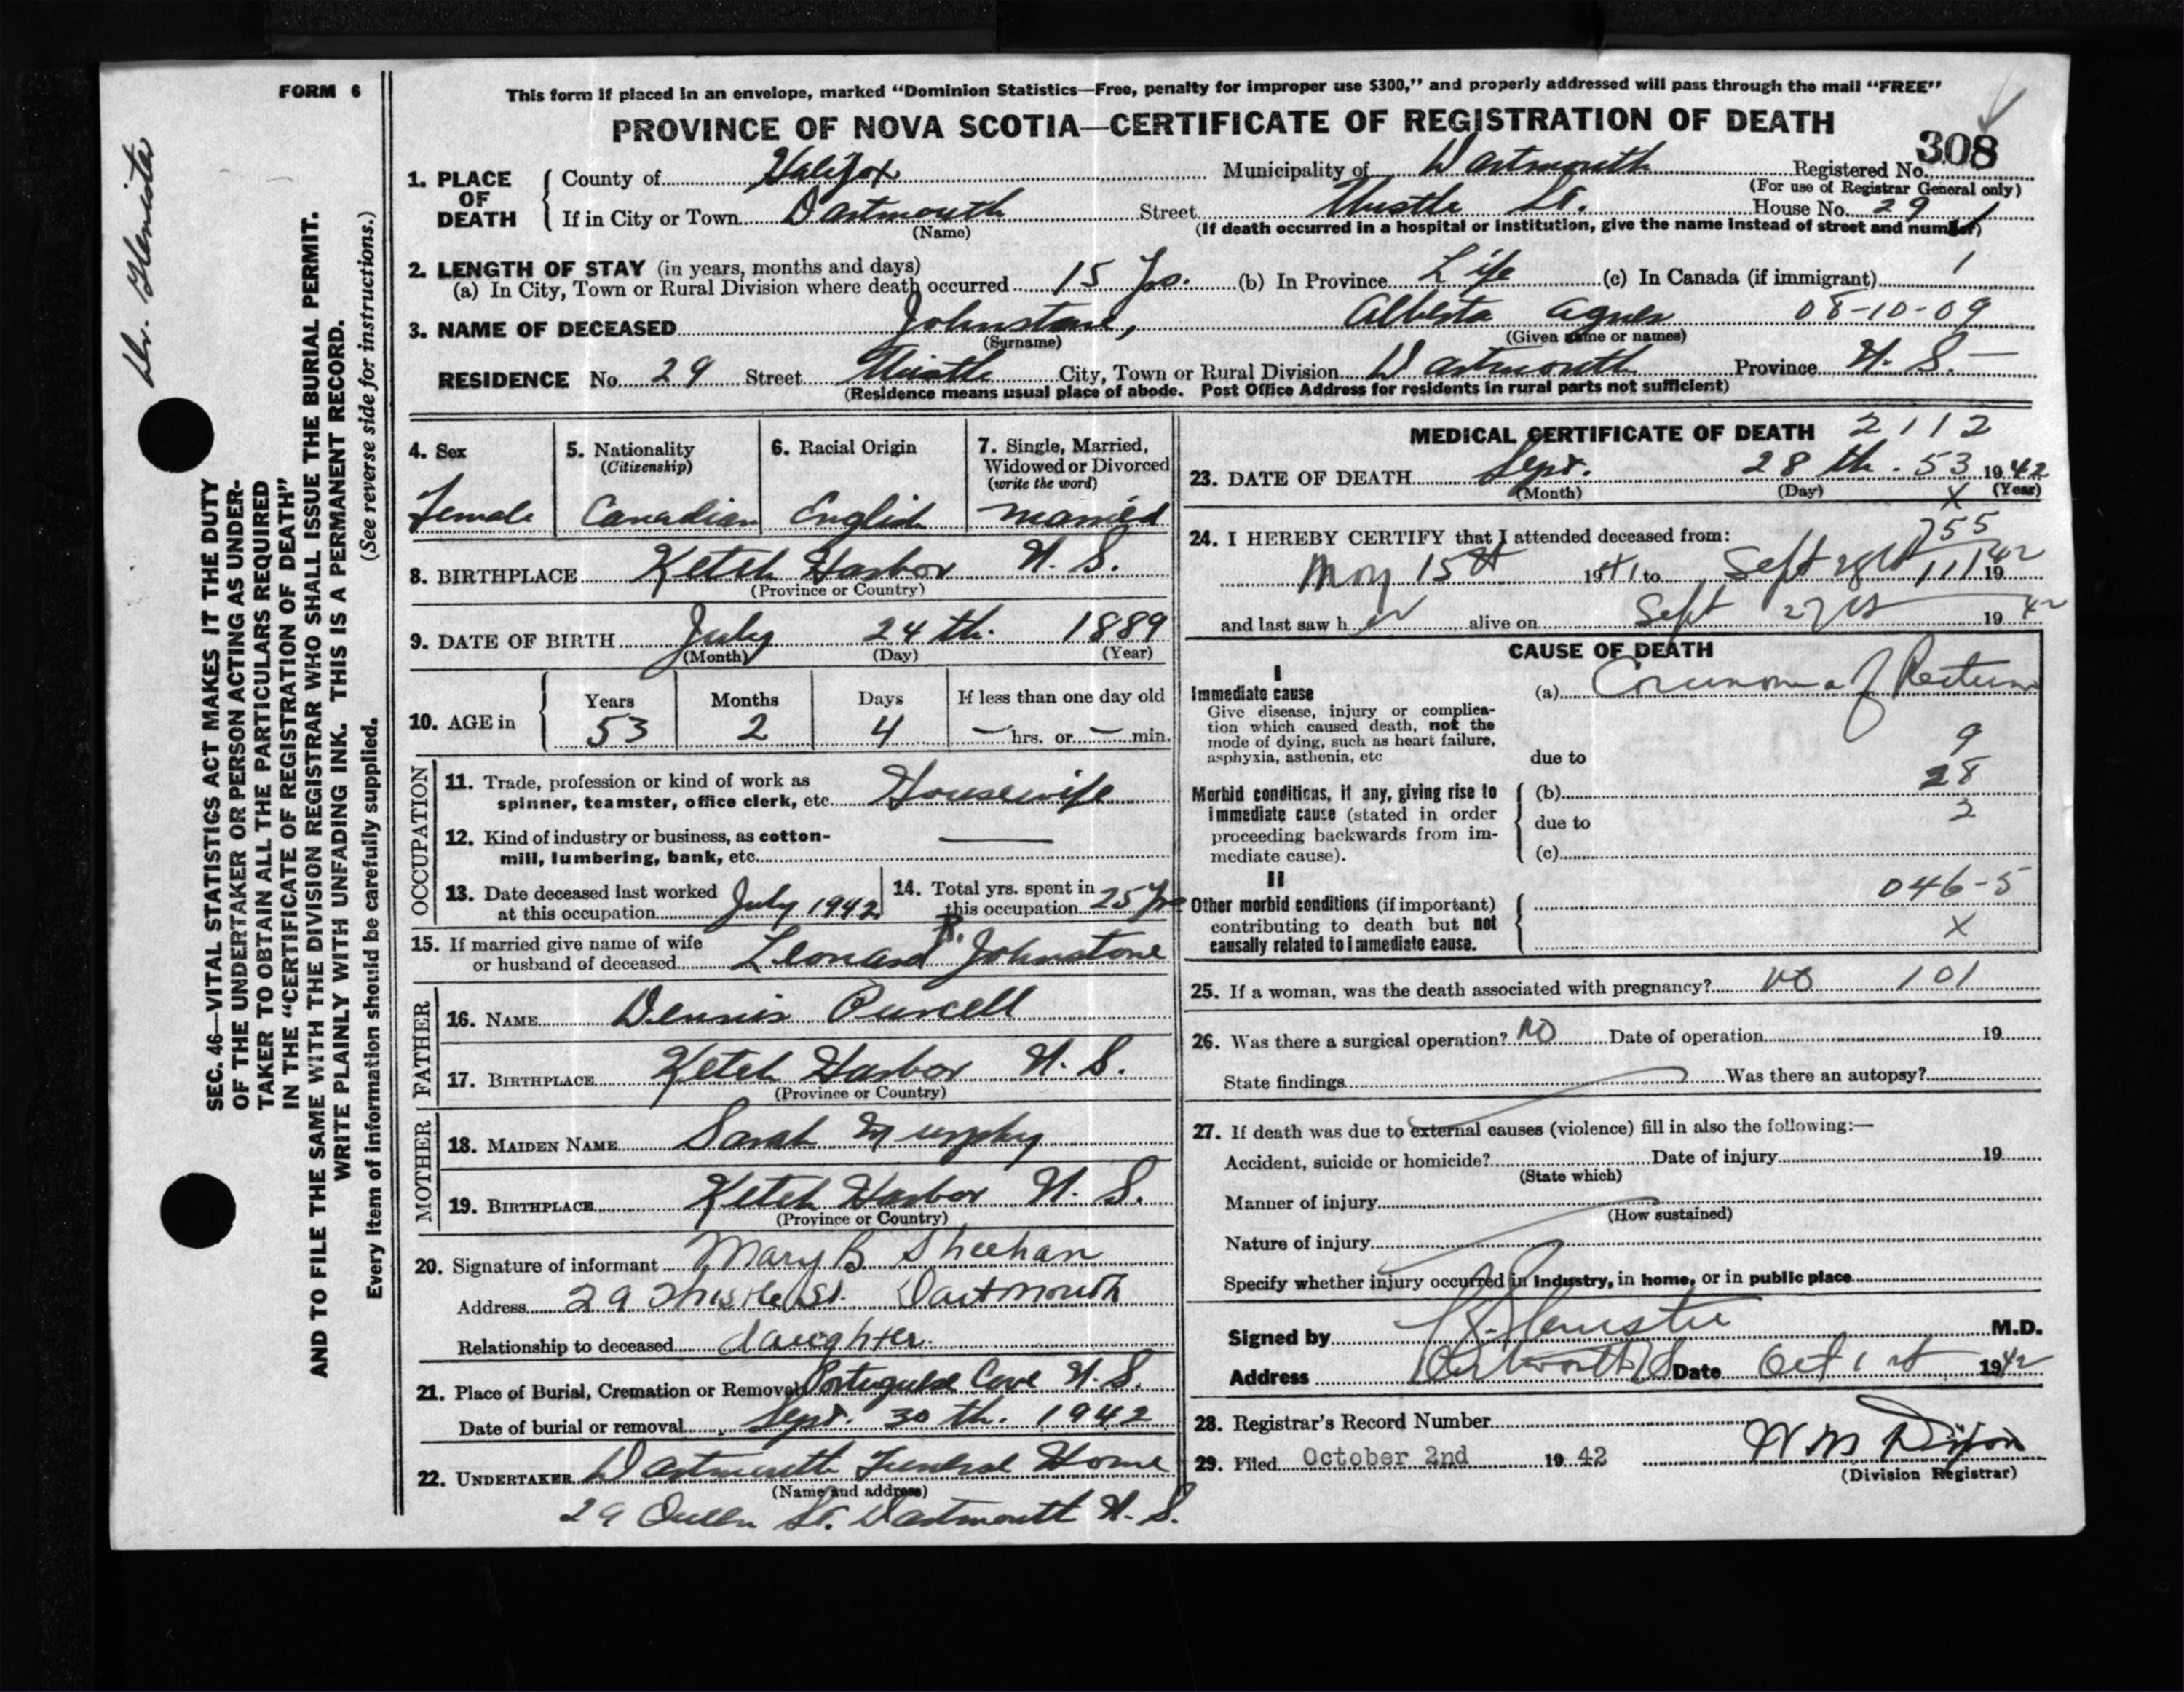 FORM 6
This form if placed in an envelope, marked "Dominion Statistics—Free, penalty for improper use $300," and properly addressed will pass through the mail "FREE"
PROVINCE OF NOVA SCOTIA—CERTIFICATE OF REGISTRATION OF DEATH
308
1. PLACE OF DEATH
County of Halifax Municipality of Dartmouth Registered No.
(For use of Registrar General only)
If in City or Town Dartmouth Street Thistle St. House No. 29
(Name) (If death occurred in a hospital or institution, give the name instead of street and number)
2. LENGTH OF STAY (in years, months and days)
(a) In City, Town or Rural Division where death occurred 15 yrs. (b) In Province Life (c) In Canada (if immigrant) /
3. NAME OF DECEASED Johnstone, Alberta Agnes 08-10-09
(Surname) (Given name or names)
RESIDENCE No. 29 Street Thistle City, Town or Rural Division Dartmouth Province N. S. —
(Residence means usual place of abode. Post Office Address for residents in rural parts not sufficient)
4. Sex Female
5. Nationality (Citizenship) Canadian
6. Racial Origin English
7. Single, Married, Widowed or Divorced (write the word) Married
8. BIRTHPLACE Ketch Harbor N. S.
(Province or Country)
9. DATE OF BIRTH July 24 th. 1889
(Month) (Day) (Year)
10. AGE in Years 53 Months 2 Days 4 If less than one day old — hrs. or — min.
OCCUPATION
11. Trade, profession or kind of work as
spinner, teamster, office clerk, etc. Housewife
12. Kind of industry or business, as cotton-
mill, lumbering, bank, etc. —
13. Date deceased last worked
at this occupation July 1942
14. Total yrs. spent in
this occupation 25 yrs
15. If married give name of wife
or husband of deceased Leonard R. Johnstone
FATHER
16. NAME Dennis Purcell
17. BIRTHPLACE Ketch Harbor N. S.
(Province or Country)
MOTHER
18. MAIDEN NAME Sarah Murphy
19. BIRTHPLACE Ketch Harbor N. S.
(Province or Country)
20. Signature of informant Mary B Sheehan
Address 29 Thistle St. Dartmouth
Relationship to deceased daughter.
21. Place of Burial, Cremation or Removal Portuguese Cove N. S.
Date of burial or removal Sept. 30 th. 1942
22. UNDERTAKER Dartmouth Funeral Home
(Name and address)
29 Queen St. Dartmouth N. S.
MEDICAL CERTIFICATE OF DEATH 2112
23. DATE OF DEATH Sept. 28 th. 53 1942
(Month) (Day) X (Year)
24. I HEREBY CERTIFY that I attended deceased from: 755
May 15th 1941 to Sept 28th 111 1942
and last saw her alive on Sept 27th 1942
CAUSE OF DEATH
I
Immediate cause
Give disease, injury or complica-
tion which caused death, not the
mode of dying, such as heart failure,
asphyxia, asthenia, etc
(a) Carcinoma of Rectum
9
due to
28
Morbid conditions, if any, giving rise to
immediate cause (stated in order
proceeding backwards from im-
mediate cause).
(b)
2
due to
(c)
II
Other morbid conditions (if important)
contributing to death but not
causally related to immediate cause.
046-5
X
25. If a woman, was the death associated with pregnancy? No 101
26. Was there a surgical operation? No Date of operation 19
State findings Was there an autopsy?
27. If death was due to external causes (violence) fill in also the following:—
Accident, suicide or homicide? Date of injury 19
(State which)
Manner of injury
(How sustained)
Nature of injury
Specify whether injury occurred in industry, in home, or in public place
Signed by M.D.
Address Dartmouth NS Date Oct 1st 1942
28. Registrar's Record Number
29. Filed October 2nd 19 42 W M Dixon
(Division Registrar)
SEC. 46—VITAL STATISTICS ACT MAKES IT THE DUTY
OF THE UNDERTAKER OR PERSON ACTING AS UNDER-
TAKER TO OBTAIN ALL THE PARTICULARS REQUIRED
IN THE "CERTIFICATE OF REGISTRATION OF DEATH"
AND TO FILE THE SAME WITH THE DIVISION REGISTRAR WHO SHALL ISSUE THE BURIAL PERMIT.
WRITE PLAINLY WITH UNFADING INK. THIS IS A PERMANENT RECORD.
Every item of information should be carefully supplied. (See reverse side for instructions.)
Dr.